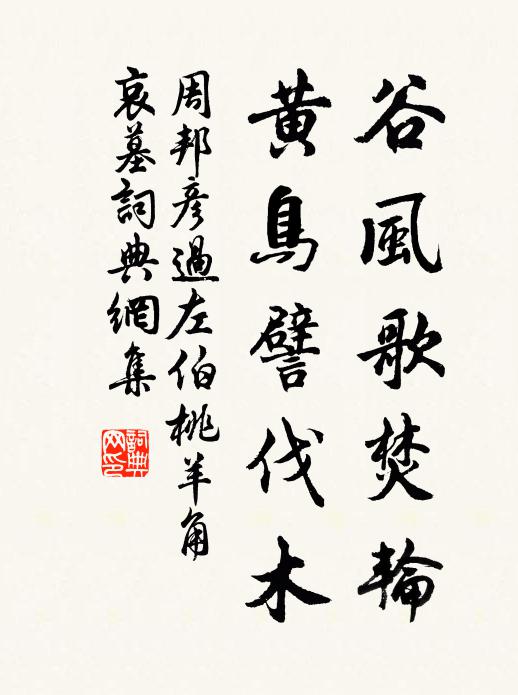 谷風歌焚輪
黃鳥譬伐木
周邦彥過左伯桃羊角
哀墓詞典網集
詞典网印